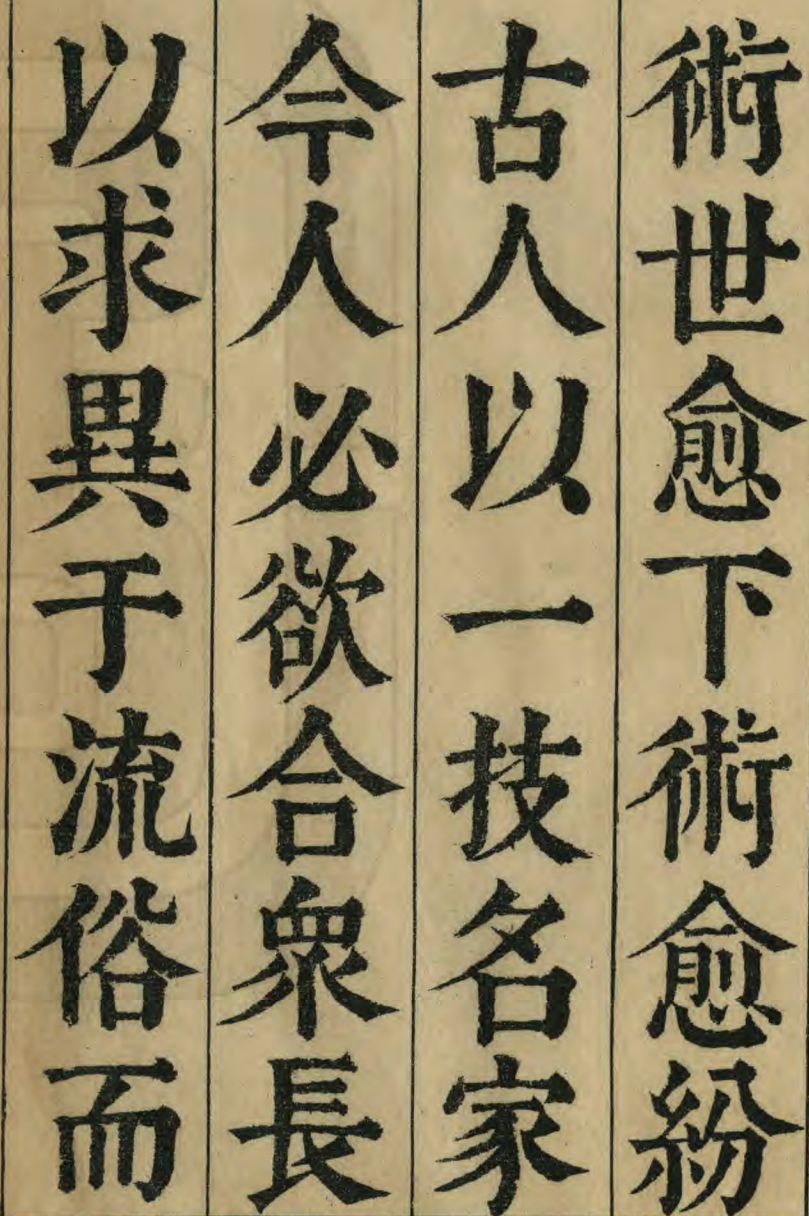 術世愈下術愈紛
古人以一技名家
今人必欲合衆長
以求異于流俗而